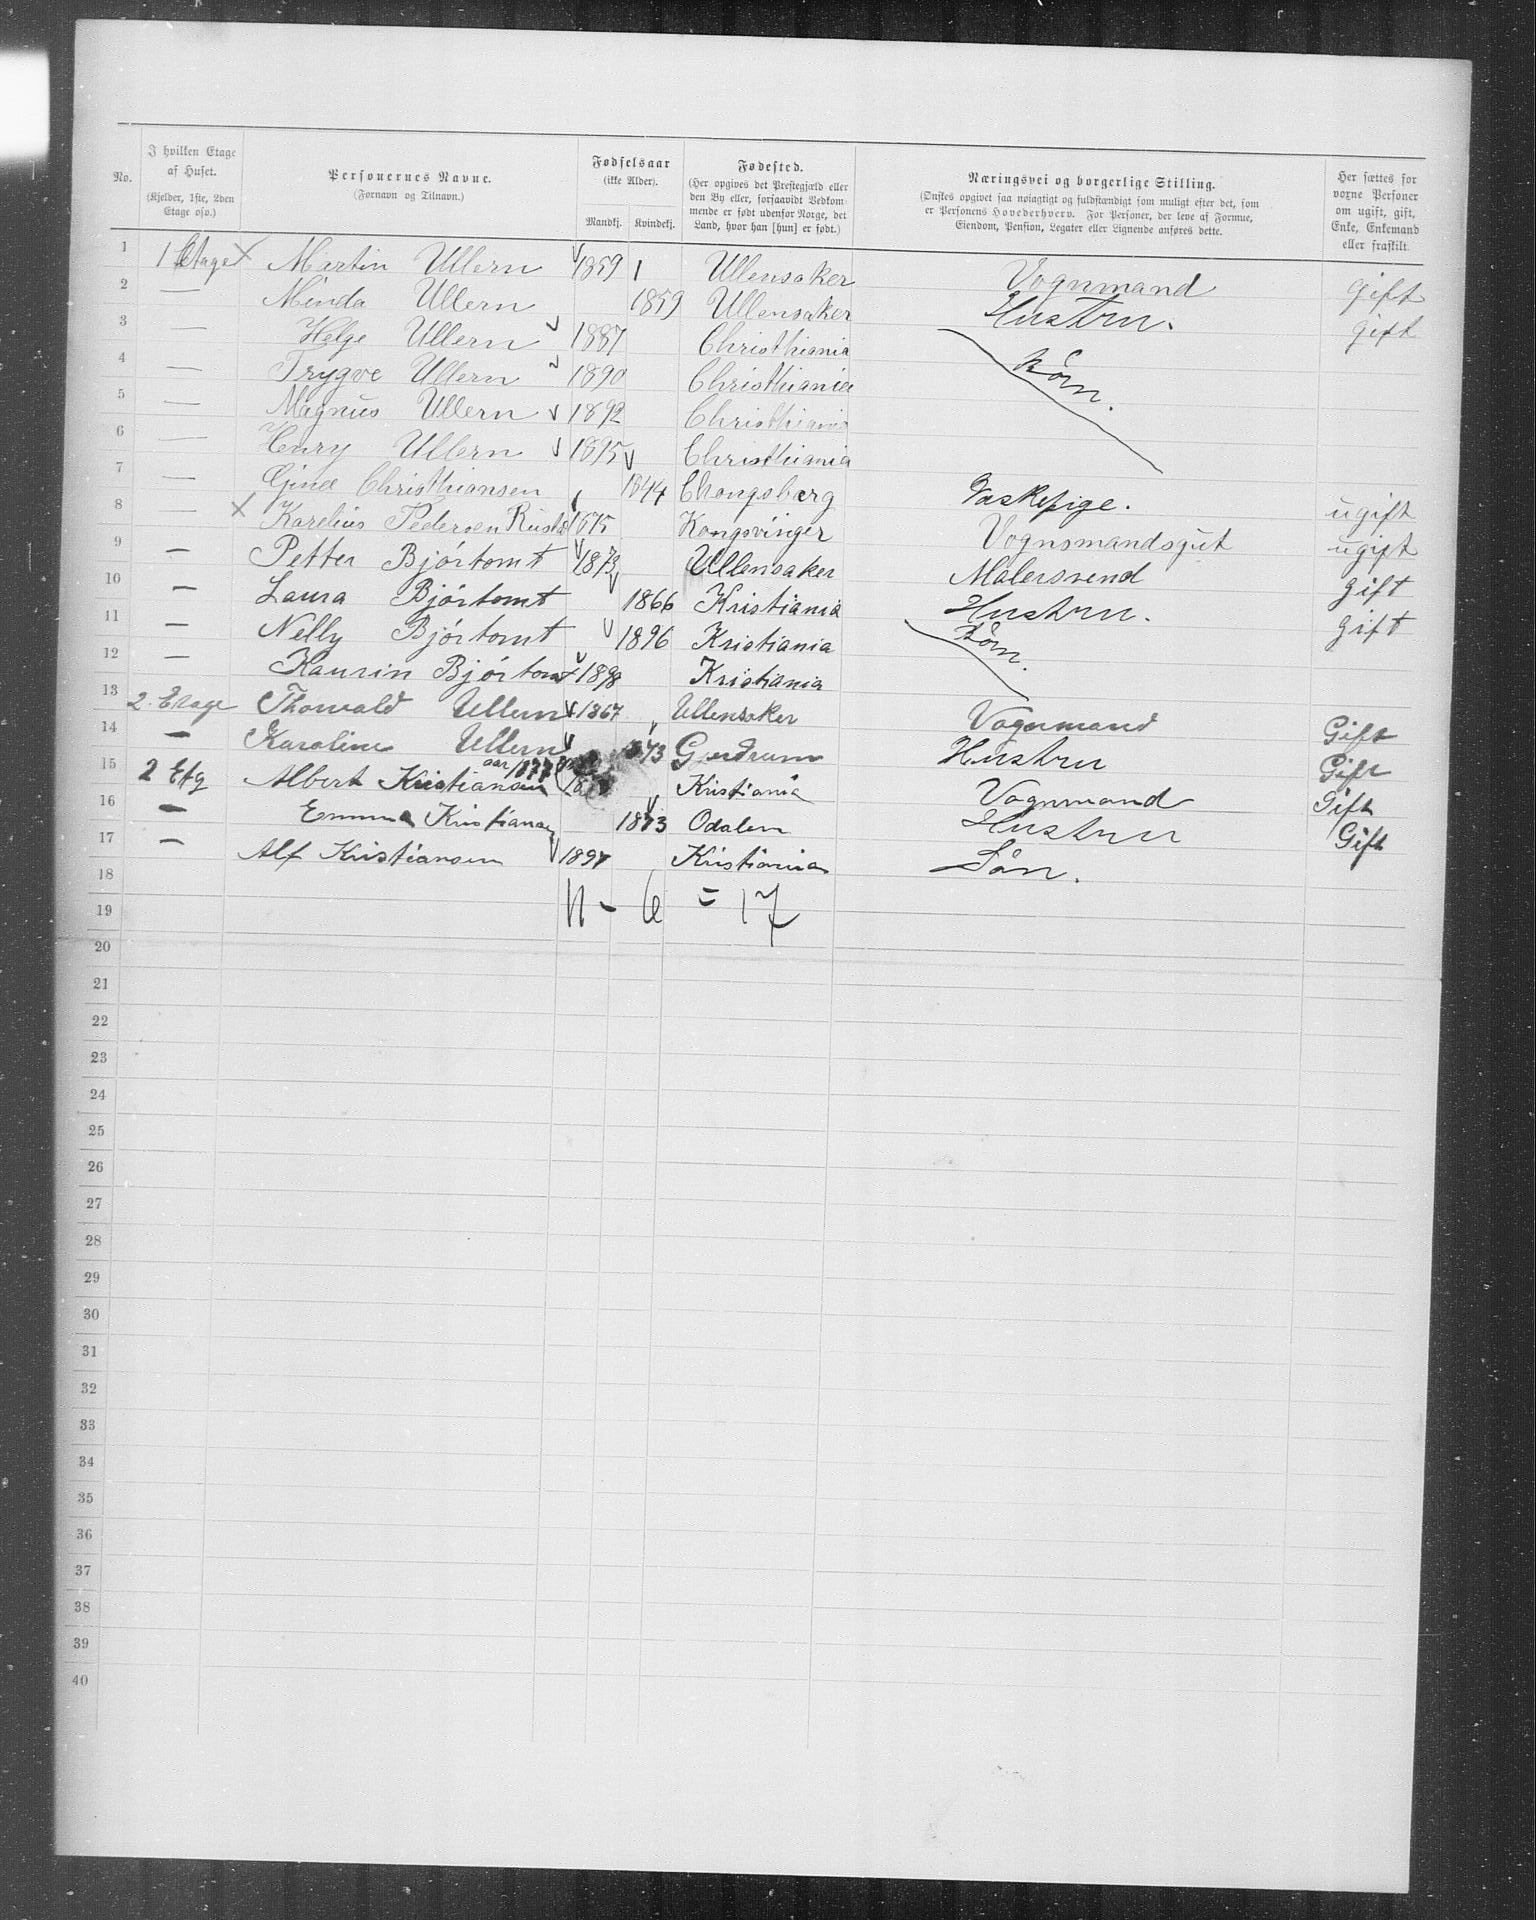 No.
I hvilken Etage af Huset. (Kjelder, 1ste, 2den Etage osv.)
Personernes Navne. (Fornavn og Tilnavn.)
Fødselsaar (ikke Alder). Mandkj. Kvindekj.
Fødested. (Her opgives det Prestegjæld eller den By eller, forsaavidt Vedkommende er født udenfor Norge, det Land, hvor han [hun] er født.)
Næringsvei og borgerlige Stilling. (Ønskes opgivet saa nøiagtigt og fuldstændigt som muligt efter det, som er Personens Hovederhverv. For Personer, der leve af Formue, Eiendom, Pension, Legater eller Lignende anføres dette.
Her sættes for voxne Personer om ugift, gift, Enke, Enkemand eller fraskilt.
1 1 Etage Martin Ullern 1859 Ullensaker Vognmand gift
2 — Minda Ullern 1859 Ullensaker Hustru. gift
3 — Helge Ullern 1887 Christhiania
4 — Trygve Ullern 1890 Christhiania Börn.
5 — Magnus Ullern 1892 Christhiania
6 — Henry Ullern 1895 Christhiania
7 — Gina Christhiansen 1844 Chongsberg Vaskepige. ugift
8 — Karelius Pedersen 1875 Kongsvinger Vognsmandsgut ugift
9 — Petter Bjórtomt 1873 Ullensaker Malersvend gift
10 — Laura Bjórtomt 1866 Kristiania Hustru. gift
11 — Nelly Bjórtomt 1896 Kristiania Börn.
12 — Kaurin Bjórtomt 1898 Kristiania
13 2. Etage Thorvald Ullern 1867 Ullensaker Vognmand Gift
14 — Karoline Ullern 1873 Gjerdrum Hustru Gift
15 2 Etg Albert Kristiansen aar 1877 Kristiania Vognmand Gift
16 — Emma Kristiansen 1873 Odalen Hustru Gift
17 — Alf Kristiansen 1897 Kristiania Sön.
18
19 11 - 6 = 17
20
21
22
23
24
25
26
27
28
29
30
31
32
33
34
35
36
37
38
39
40